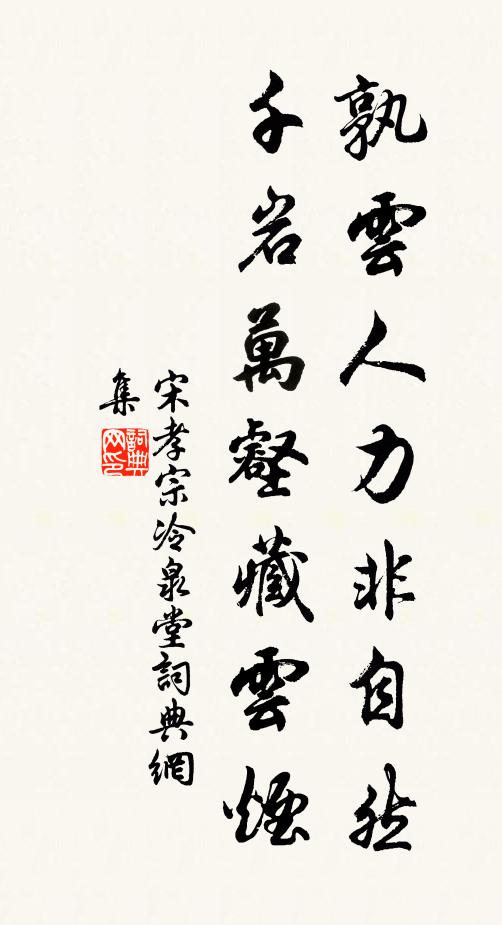 孰雲人力非自然
千岩萬壑藏雲煙
宋孝宗冷泉堂詞典網
集
詞典网印